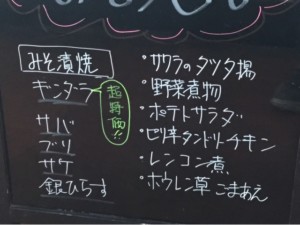 みそ漬焼
キンダラ
超特価!!
サバ
ブリ
サケ
銀ひらす
・サワラのタツタ揚
・野菜煮物
・ポテトサラダ
・ピリ辛タンドリーチキン
・レンコン煮
・ホウレン草ごまあえ